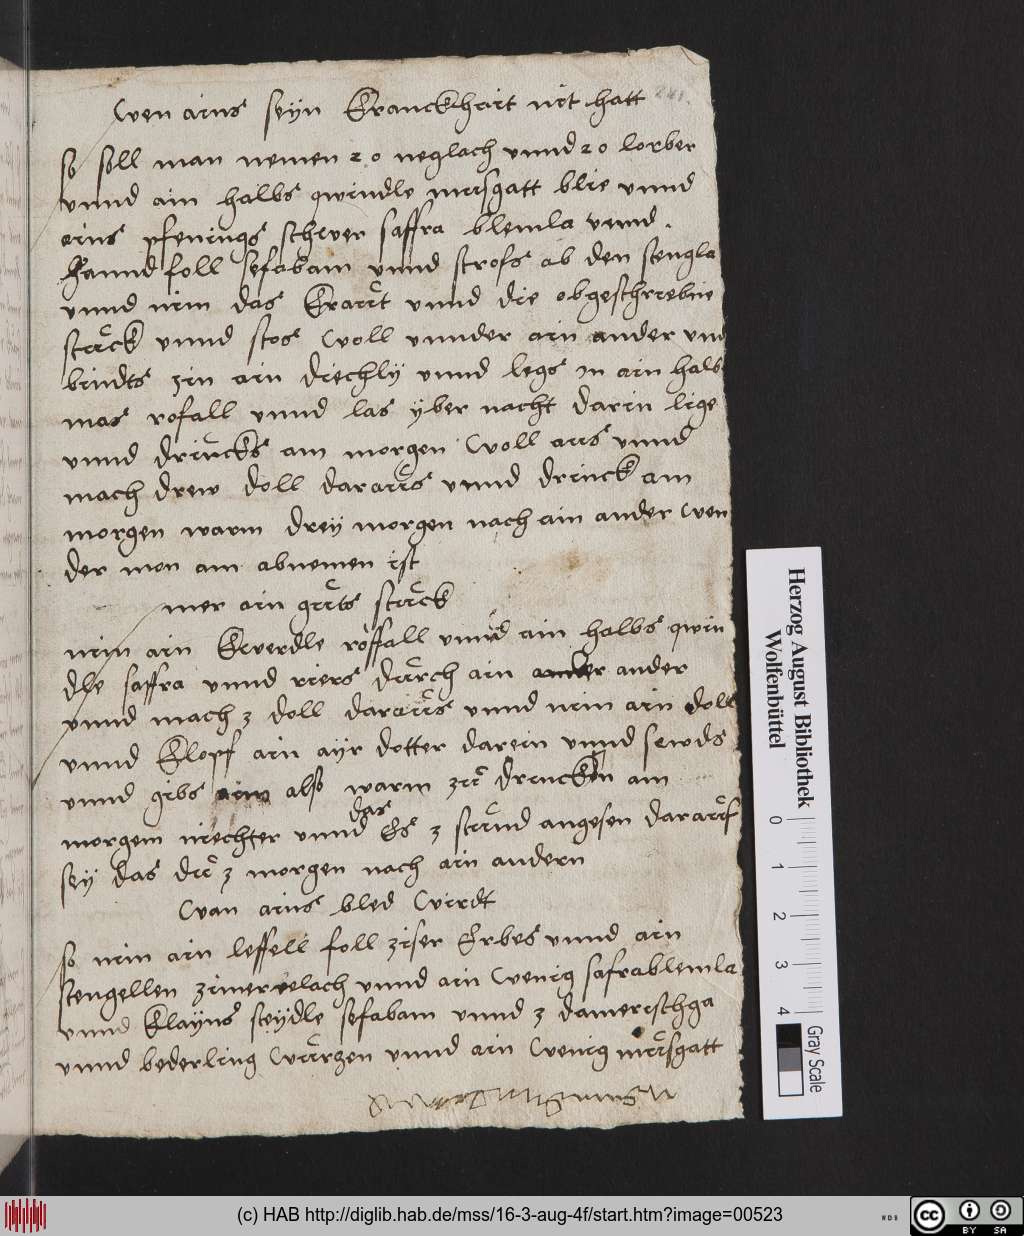 Wen ains seyn Kranckhait nit hatt
so soll man nemen 20 neglach vnnd 20 lorber
vnnd ain halbs qwindle müsgatt blie vnnd
eins pfenings schwer saffra blemla vnnd
hannd foll sefabam vnnd strofs ab den stengla
vnnd nim das Kraüt vnnd die obgeschriebne
stück vnnd stos woll vnnder ain ander vnd
bindts zin ain diechly vnnd legs in ain halb
mas rofall vnnd las yber nacht darin lige
vnnd drücks am morgen woll aus vnnd
mach drew doll daraüs vnnd drinck am
morgen warm drey morgen nach ain ander wen
der mon am abnemen ist
mer ain güts stück
nim ain Kwerdle röffall vnnd ain halbs qwin
dle saffra vnnd riers dürch ain ander
vnnd mach 3 doll daraüs vnnd nim ain doll
vnnd Klopf ain ayr dotter darein vnnd sewds
vnnd gibs aim also warm zü drincken am
morgem niechter vnnd das Es 3 stünd angesen daraüf
sey das dü 3 morgen nach ain andern
Wan ains bled Wirdt
so nim ain leffell foll ziser Erbes vnnd ain
stengellen zimerrelach vnnd ain wenig safrablemla
vnnd Klayns steydle sefabam vnnd 3 damerischga
vnnd bederling Würzen vnnd ain wenig müsgatt
Herzog August Bibliothek
Wolfenbüttel
0 1 2 3 4
Gray Scale
(c) HAB http://diglib.hab.de/mss/16-3-aug-4f/start.htm?image=00523
WDB
cc BY SA